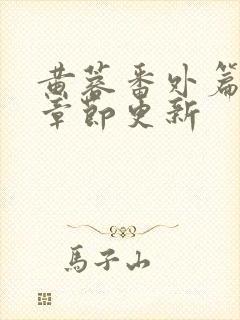 黄蓉番外篇
章节更新
馬子山